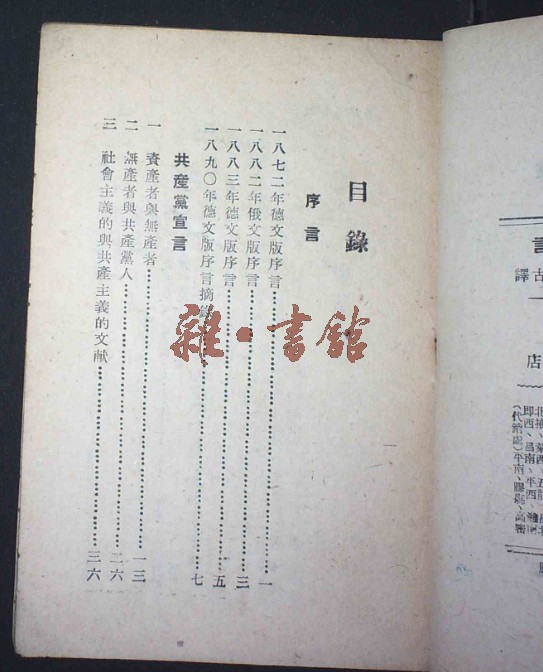 目錄
序言
一八七二年德文版序言……一
一八八二年俄文版序言……三
一八八三年德文版序言……五
一八九〇年德文版序言摘錄……七
共産黨宣言
一 資產者與無產者……一三
二 無產者與共產黨人……二六
三 社會主義的與共產主義的文献……三六
雜·書舘
言
古譯
店